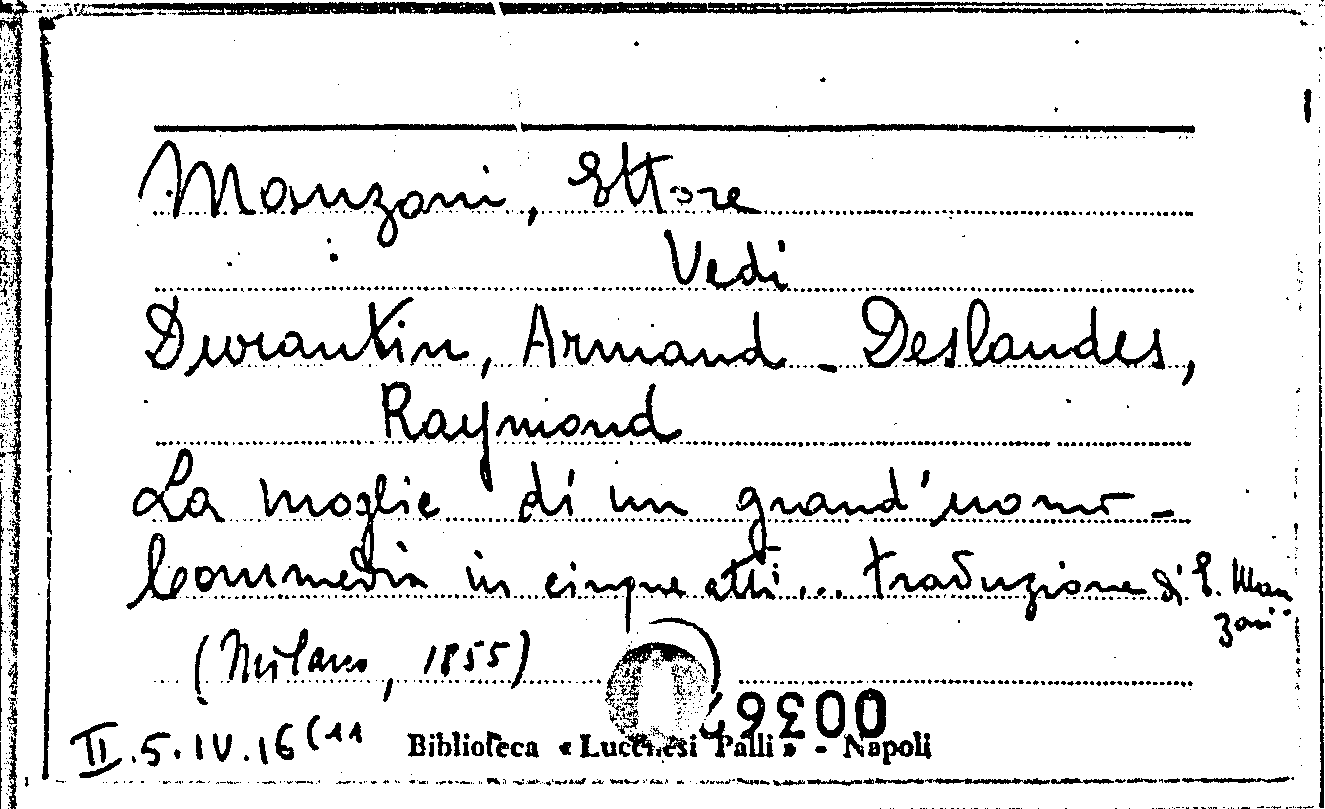 Manzoni, Ettore
Vedi
Durantin, Armand - Deslandes,
Raymond
La moglie di un grand'uomo -
Commedia in cinque atti... traduzione di E. Man
zoni
(Milano, 1855)
II.5.IV.16(11
Biblioteca « Lucchesi Palli » - Napoli